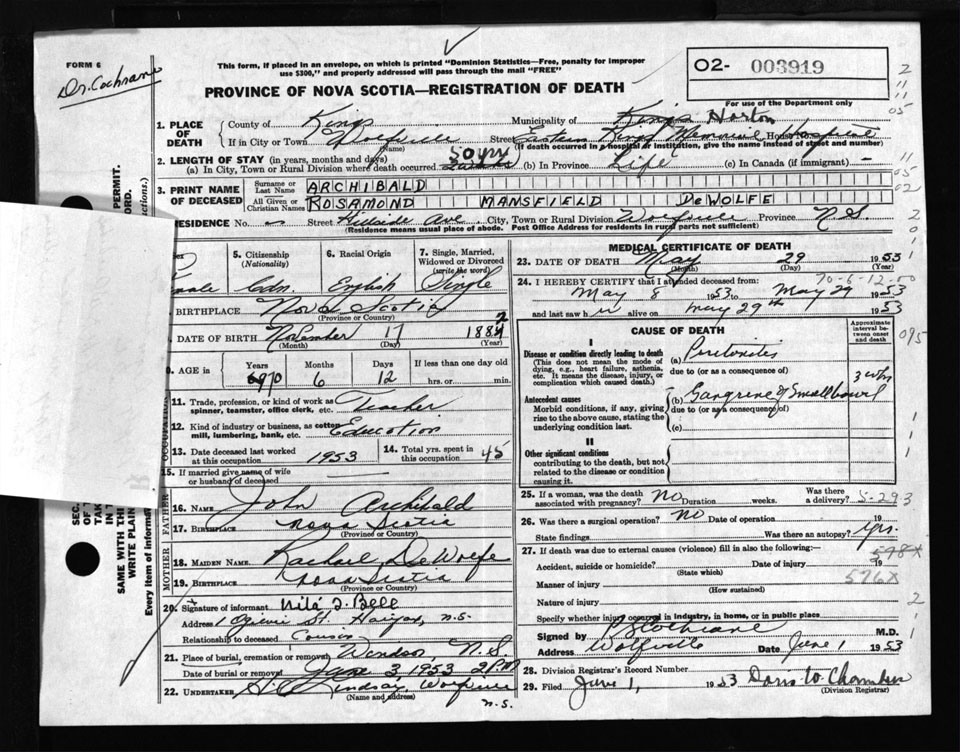 FORM 6
Dr. Cochrane
This form, if placed in an envelope, on which is printed "Dominion Statistics—Free, penalty for improper
use $300," and properly addressed will pass through the mail "FREE"
O2- 003919
For use of the Department only
PROVINCE OF NOVA SCOTIA—REGISTRATION OF DEATH
1. PLACE OF DEATH
County of Kings Municipality of Kings Horton
If in City or Town Wolfville Street Eastern Kings Memorial House No. Hospital
(Name) (If death occurred in a hospital or institution, give the name instead of street and number)
2. LENGTH OF STAY (in years, months and days)
(a) In City, Town or Rural Division where death occurred 50 yrs (b) In Province Life (c) In Canada (if immigrant) —
3. PRINT NAME OF DECEASED
Surname or Last Name ARCHIBALD
All Given or Christian Names ROSAMOND MANSFIELD DeWOLFE
RESIDENCE No. — Street Hillside Ave. City, Town or Rural Division Wolfville Province N.S.
(Residence means usual place of abode. Post Office Address for residents in rural parts not sufficient)
5. Citizenship (Nationality) Cdn.
6. Racial Origin English
7. Single, Married, Widowed or Divorced (write the word) Single
BIRTHPLACE Nova Scotia
(Province or Country)
DATE OF BIRTH November 17 1882
(Month) (Day) (Year)
AGE in Years 70 Months 6 Days 12 If less than one day old
hrs. or min.
11. Trade, profession, or kind of work as
spinner, teamster, office clerk, etc. Teacher
12. Kind of industry or business, as cotton
mill, lumbering, bank, etc. Education
13. Date deceased last worked at this occupation 1953
14. Total yrs. spent in this occupation 45
15. If married give name of wife
or husband of deceased
FATHER
16. Name John Archibald
17. Birthplace Nova Scotia
(Province or Country)
MOTHER
18. MAIDEN NAME Rachael DeWolfe
19. Birthplace Nova Scotia
(Province or Country)
20. Signature of informant Nila I. Bell
Address 1 Ogilvie St. Halifax, N.S.
Relationship to deceased Cousin
21. Place of burial, cremation or removal Windsor, N.S.
Date of burial or removal June 3, 1953 2 P.M
22. UNDERTAKER Lindsay, Wolfville
(Name and address) N.S.
MEDICAL CERTIFICATE OF DEATH
23. DATE OF DEATH May 29 1953
(Month) (Day) (Year)
70-6-12
24. I HEREBY CERTIFY that I attended deceased from:
May 8 1953 to May 29 1953
and last saw h er alive on May 29th 1953
CAUSE OF DEATH
Approximate interval between onset and death
095
I
Disease or condition directly leading to death
(This does not mean the mode of
dying, e.g., heart failure, asthenia,
etc. It means the disease, injury, or
complication which caused death.)
(a) Peritonitis
due to (or as a consequence of)
3 wks
Antecedent causes
Morbid conditions, if any, giving
rise to the above cause, stating the
underlying condition last.
(b) Gangrene of Small bowel
due to (or as a consequence of)
(c)
II
Other significant conditions
contributing to the death, but not
related to the disease or condition
causing it.
25. If a woman, was the death
associated with pregnancy? No Duration weeks. Was there
a delivery? 5-29-3
26. Was there a surgical operation? No Date of operation 19
State findings Was there an autopsy? Yes.
27. If death was due to external causes (violence) fill in also the following:—
Accident, suicide or homicide? Date of injury 19
(State which)
578X
576X
Manner of injury
(How sustained)
Nature of injury
Specify whether injury occurred in industry, in home, or in public place
Signed by Cochrane M.D.
Address Wolfville Date June 1 1953
28. Division Registrar's Record Number
29. Filed June 1, 1953
(Division Registrar)
PERMIT.
SAME WITH THE
WRITE PLAIN
Every item of informa